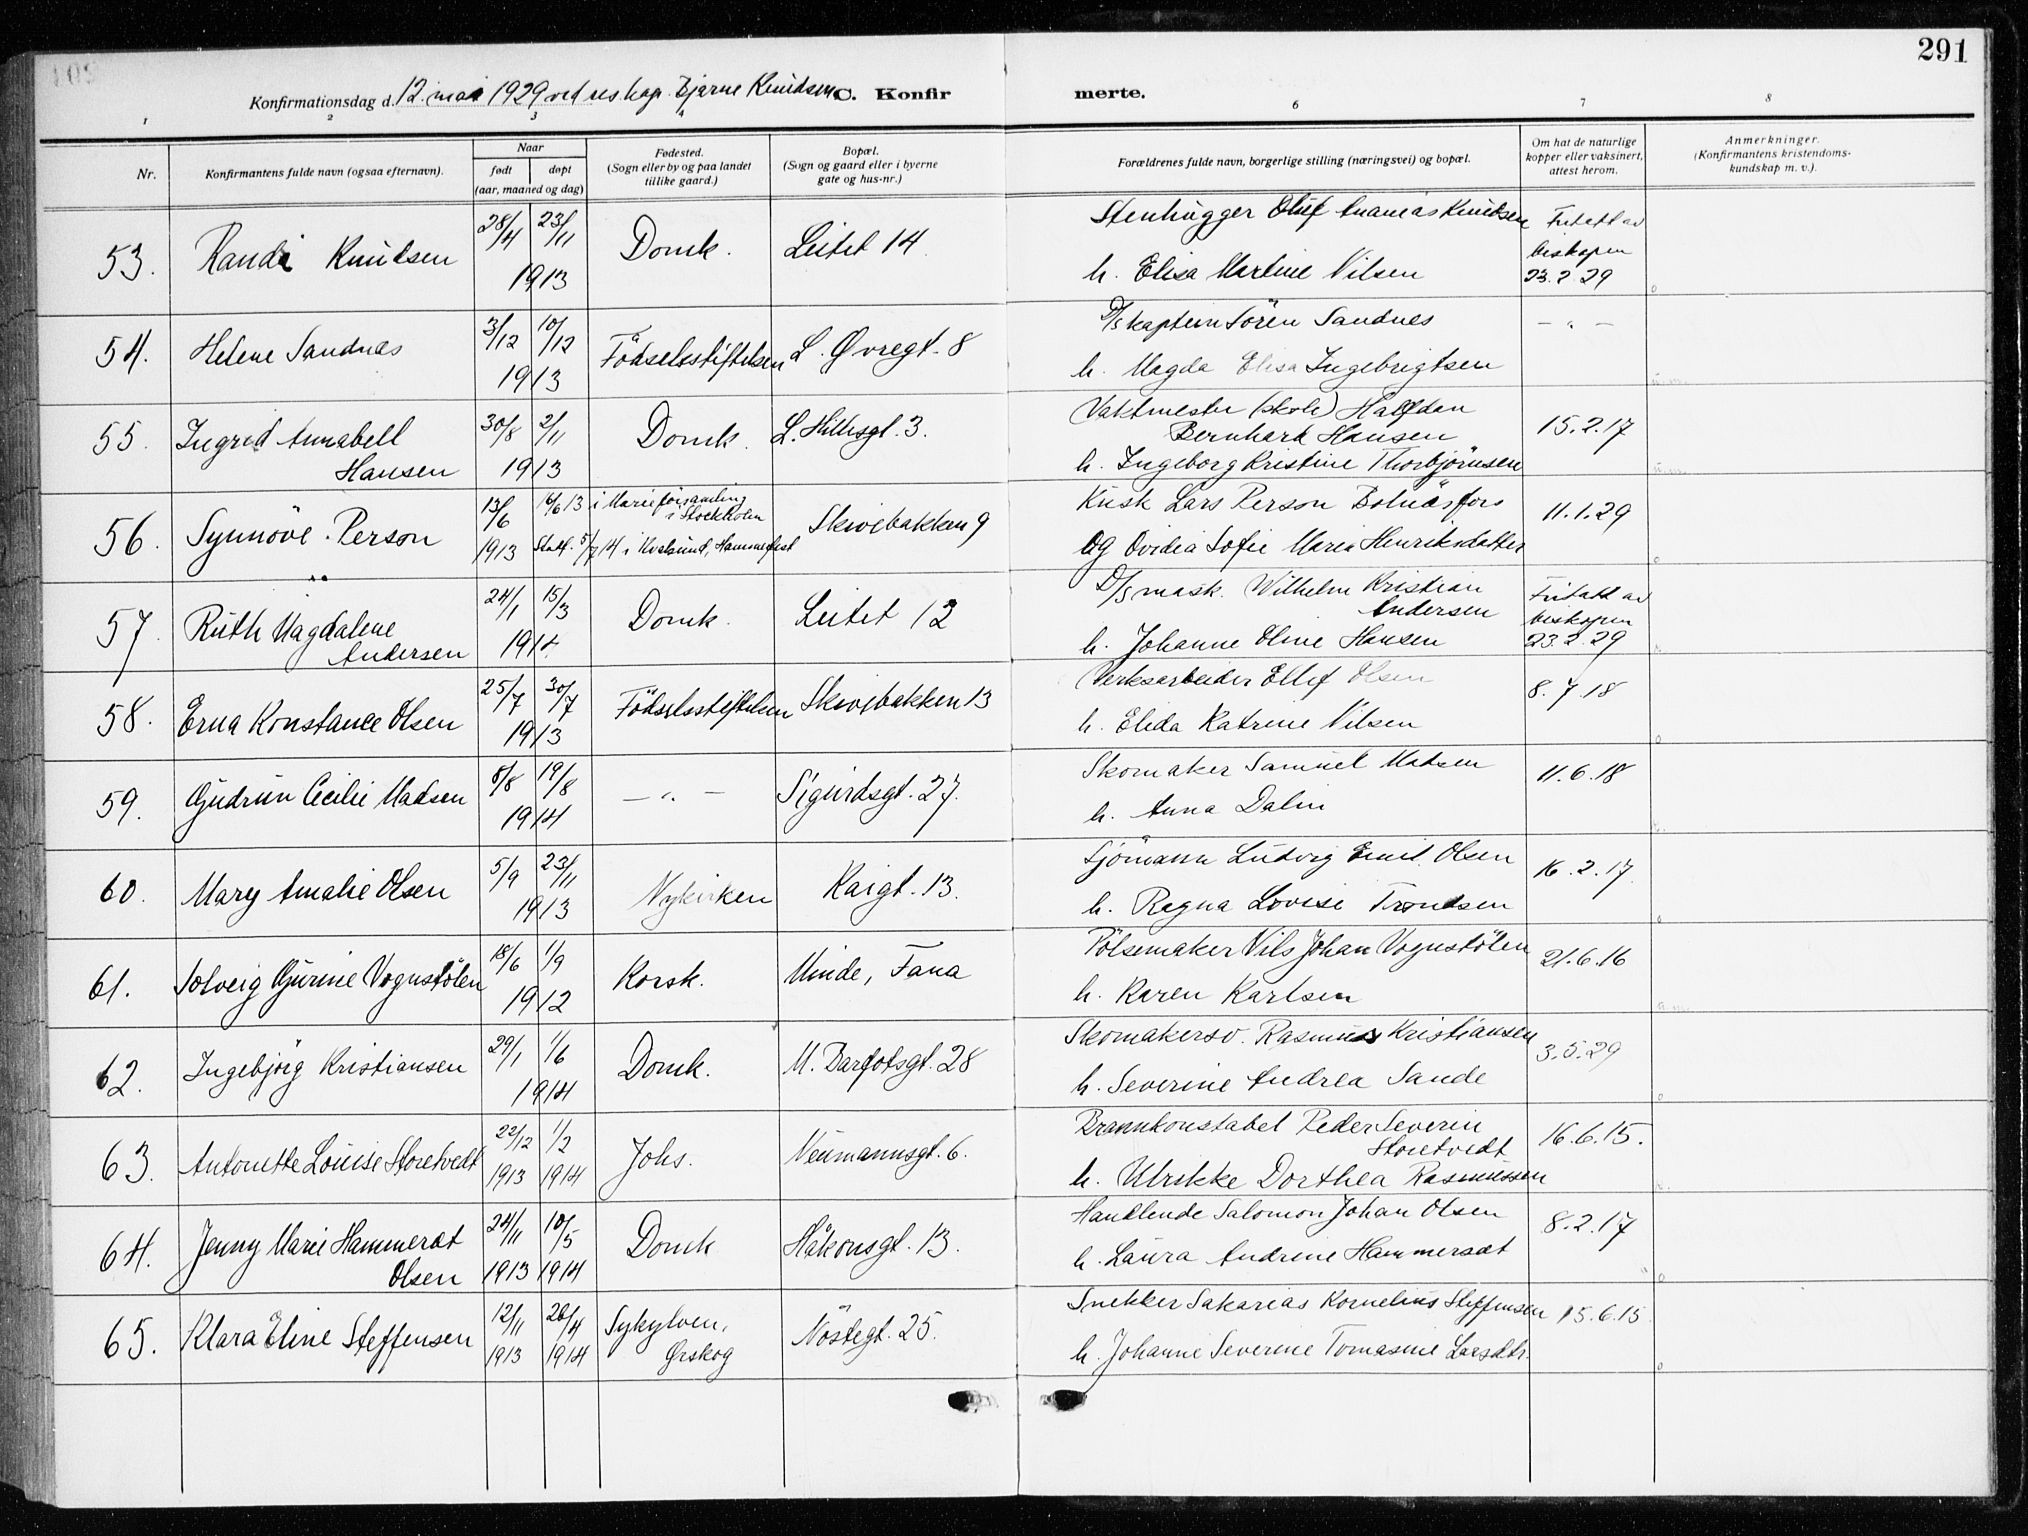 291
Konfirmationsdag d. 12. mai 1929 ved res kap. Bjarne Knudsen C. Konfirmerte.
1 2 3 4 6 7 8
Nr.
Konfirmantens fulde navn (ogsaa efternavn).
Naar
født døpt
(aar, maaned og dag)
Fødested.
(Sogn eller by og paa landet
tillike gaard.)
Bopæl.
(Sogn og gaard eller i byerne
gate og hus-nr.)
Forældrenes fulde navn, borgerlige stilling (næringsvei) og bopæl.
Om hat de naturlige
kopper eller vaksinert,
attest herom.
Anmerkninger.
(Konfirmantens kristendoms-
kundskap m. v.).
53. Randi Knudsen 28/4 23/11 1913 Domk. Leitet 14
Stenhugger Oluf Ananias Knudsen
h. Elisa Martine Nilsen
Fritatt av
biskopen
23.2.29
54. Helene Sandnes 3/12 10/12 1913 Födselsstiftelsen L. Øvregt. 8
D/s kaptein Sören Sandnes
h. Magda Elisa Ingebrigtsen
— " —
55. Ingrid Annabell
Hansen
30/8 2/11 1913 Domk. L. Hillesgt. 3.
Vaktmester (skole) Halfdan
Bernhard Hansen
h. Ingeborg Kristine Thorbjörnsen
15.2.17
56. Synnöve Person 13/6 1913 16/6 13 i Mariaförsamling
i Stockholm
Stadf. 5/7 14 i Kvalsund, Hammerfest
Skivebakken 9
Kusk Lars Person Bolnäsfors
og Ovidia Sofie Maria Henriksdatter
11.1.29
57. Ruth Magdalene
Andersen
24/1 15/3 1914. Domk. Leitet 12
D/s mask. Wilhelm Kristian
Andersen
h. Johanne Oline Hansen
Fritatt av
biskopen
23.2.29
58. Erna Konstance Olsen 25/7 30/7 1913 Födselsstiftelsen Skivebakken 13
Verksarbeider Ellef Olsen
h. Elida Katrine Nilsen
8.7.18
59. Gudrun Cecilie Madsen 8/8 19/8 1914 — " — Sigurdsgt. 27.
Skomaker Samuel Madsen
h. Anna Dalin
11.6.18
60. Mary Amalie Olsen 5/9 23/11 1913 Nykirken Kaigt. 13.
Sjömann Ludvig Emil Olsen
h. Ragna Lovise Trondsen
16.2.17.
61. Solveig Gurine Vognstölen 18/6 1/9 1912 Korsk. Minde, Fana
Pölsemaker Nils Johan Vognstölen
h. Karen Karlsen
21.6.16
62. Ingebjörg Kristiansen 29/1 1/6 1914 Domk. M. Barfotsgt. 28
Skomakersv. Rasmus Kristiansen
h. Severine Andrea Sande
3.5.29
63. Antonette Louise Storetvedt 22/12 1913 1/2 1914 Johs. Neumannsgt. 6.
Brannkonstabel Peder Severin
Storetvedt
h. Ulrikke Dorthea Rasmussen
16.6.15.
64. Jenny Marie Hammersæt
Olsen
24/11 1913 10/5 1914 Domk. Håkonsgt. 13.
Handlende Salomon Johan Olsen
h. Laura Andrine Hammersæt
8.2.17
65. Klara Eline Steffensen 12/11 1913 26/4 1914 Sykylven,
Ørskog
Nöstegt. 25.
Snekker Sakarias Kornelius Steffensen
h. Johanne Severine Tomasine Larsdtr.
15.6.15